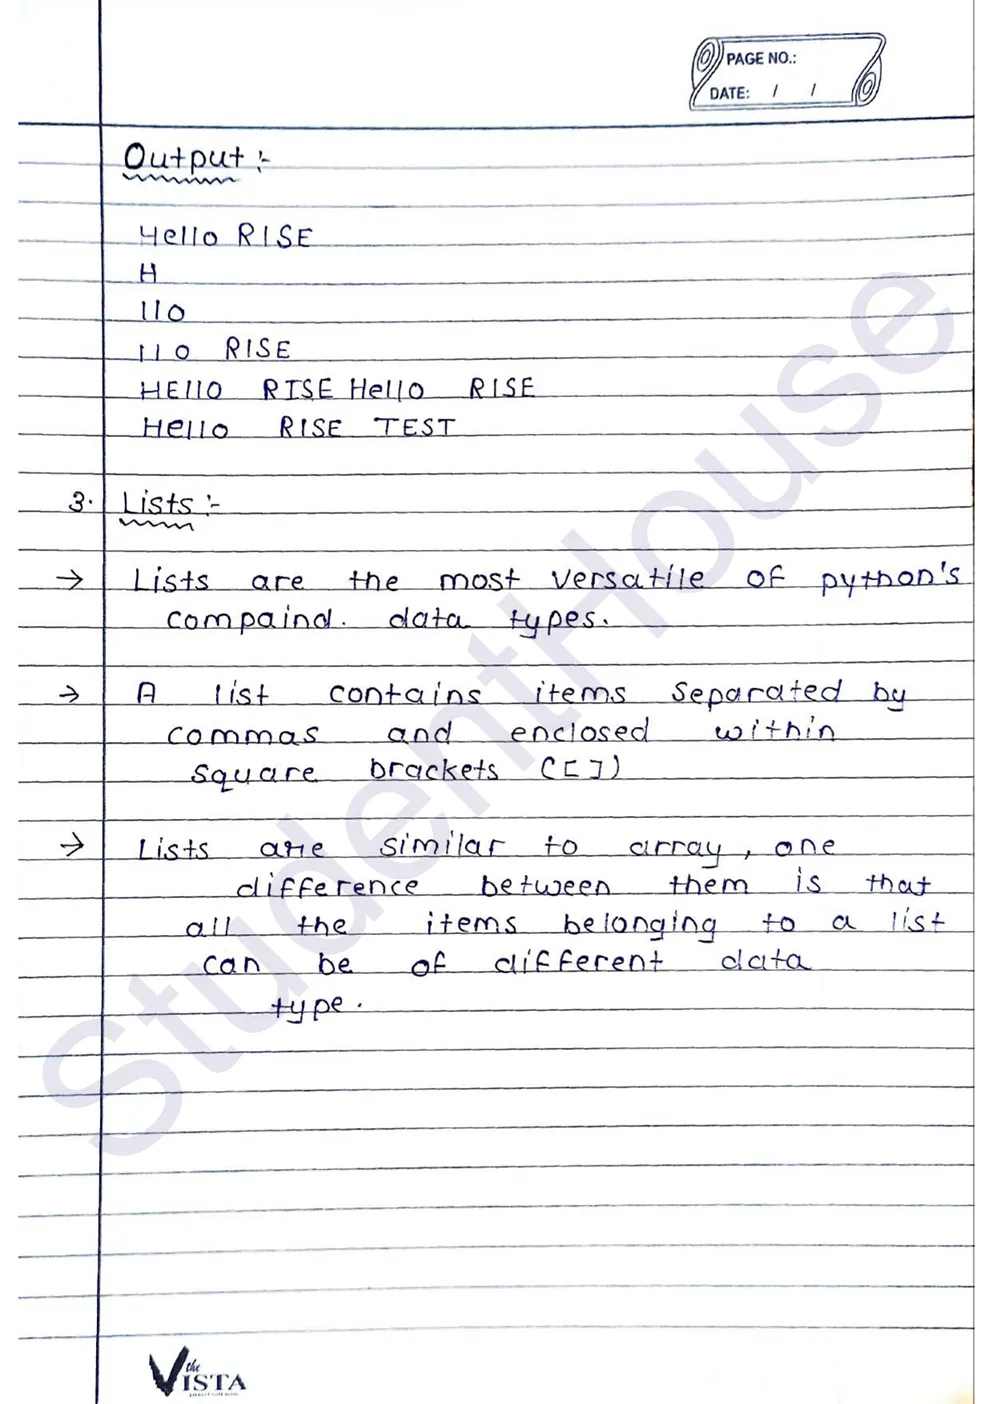 PAGE NO.:
DATE: / /
Output :-
Hello RISE
H
llo
llo RISE
HEllo RISE Hello RISE
Hello RISE TEST
3. Lists :-
→ Lists are the most versatile of python's
compaind. data types.
→ A list contains items separated by
commas and enclosed within
square brackets ([])
→ Lists are similar to array, one
difference between them is that
all the items belonging to a list
can be of different data
type.
StudentHouse
the
VISTA